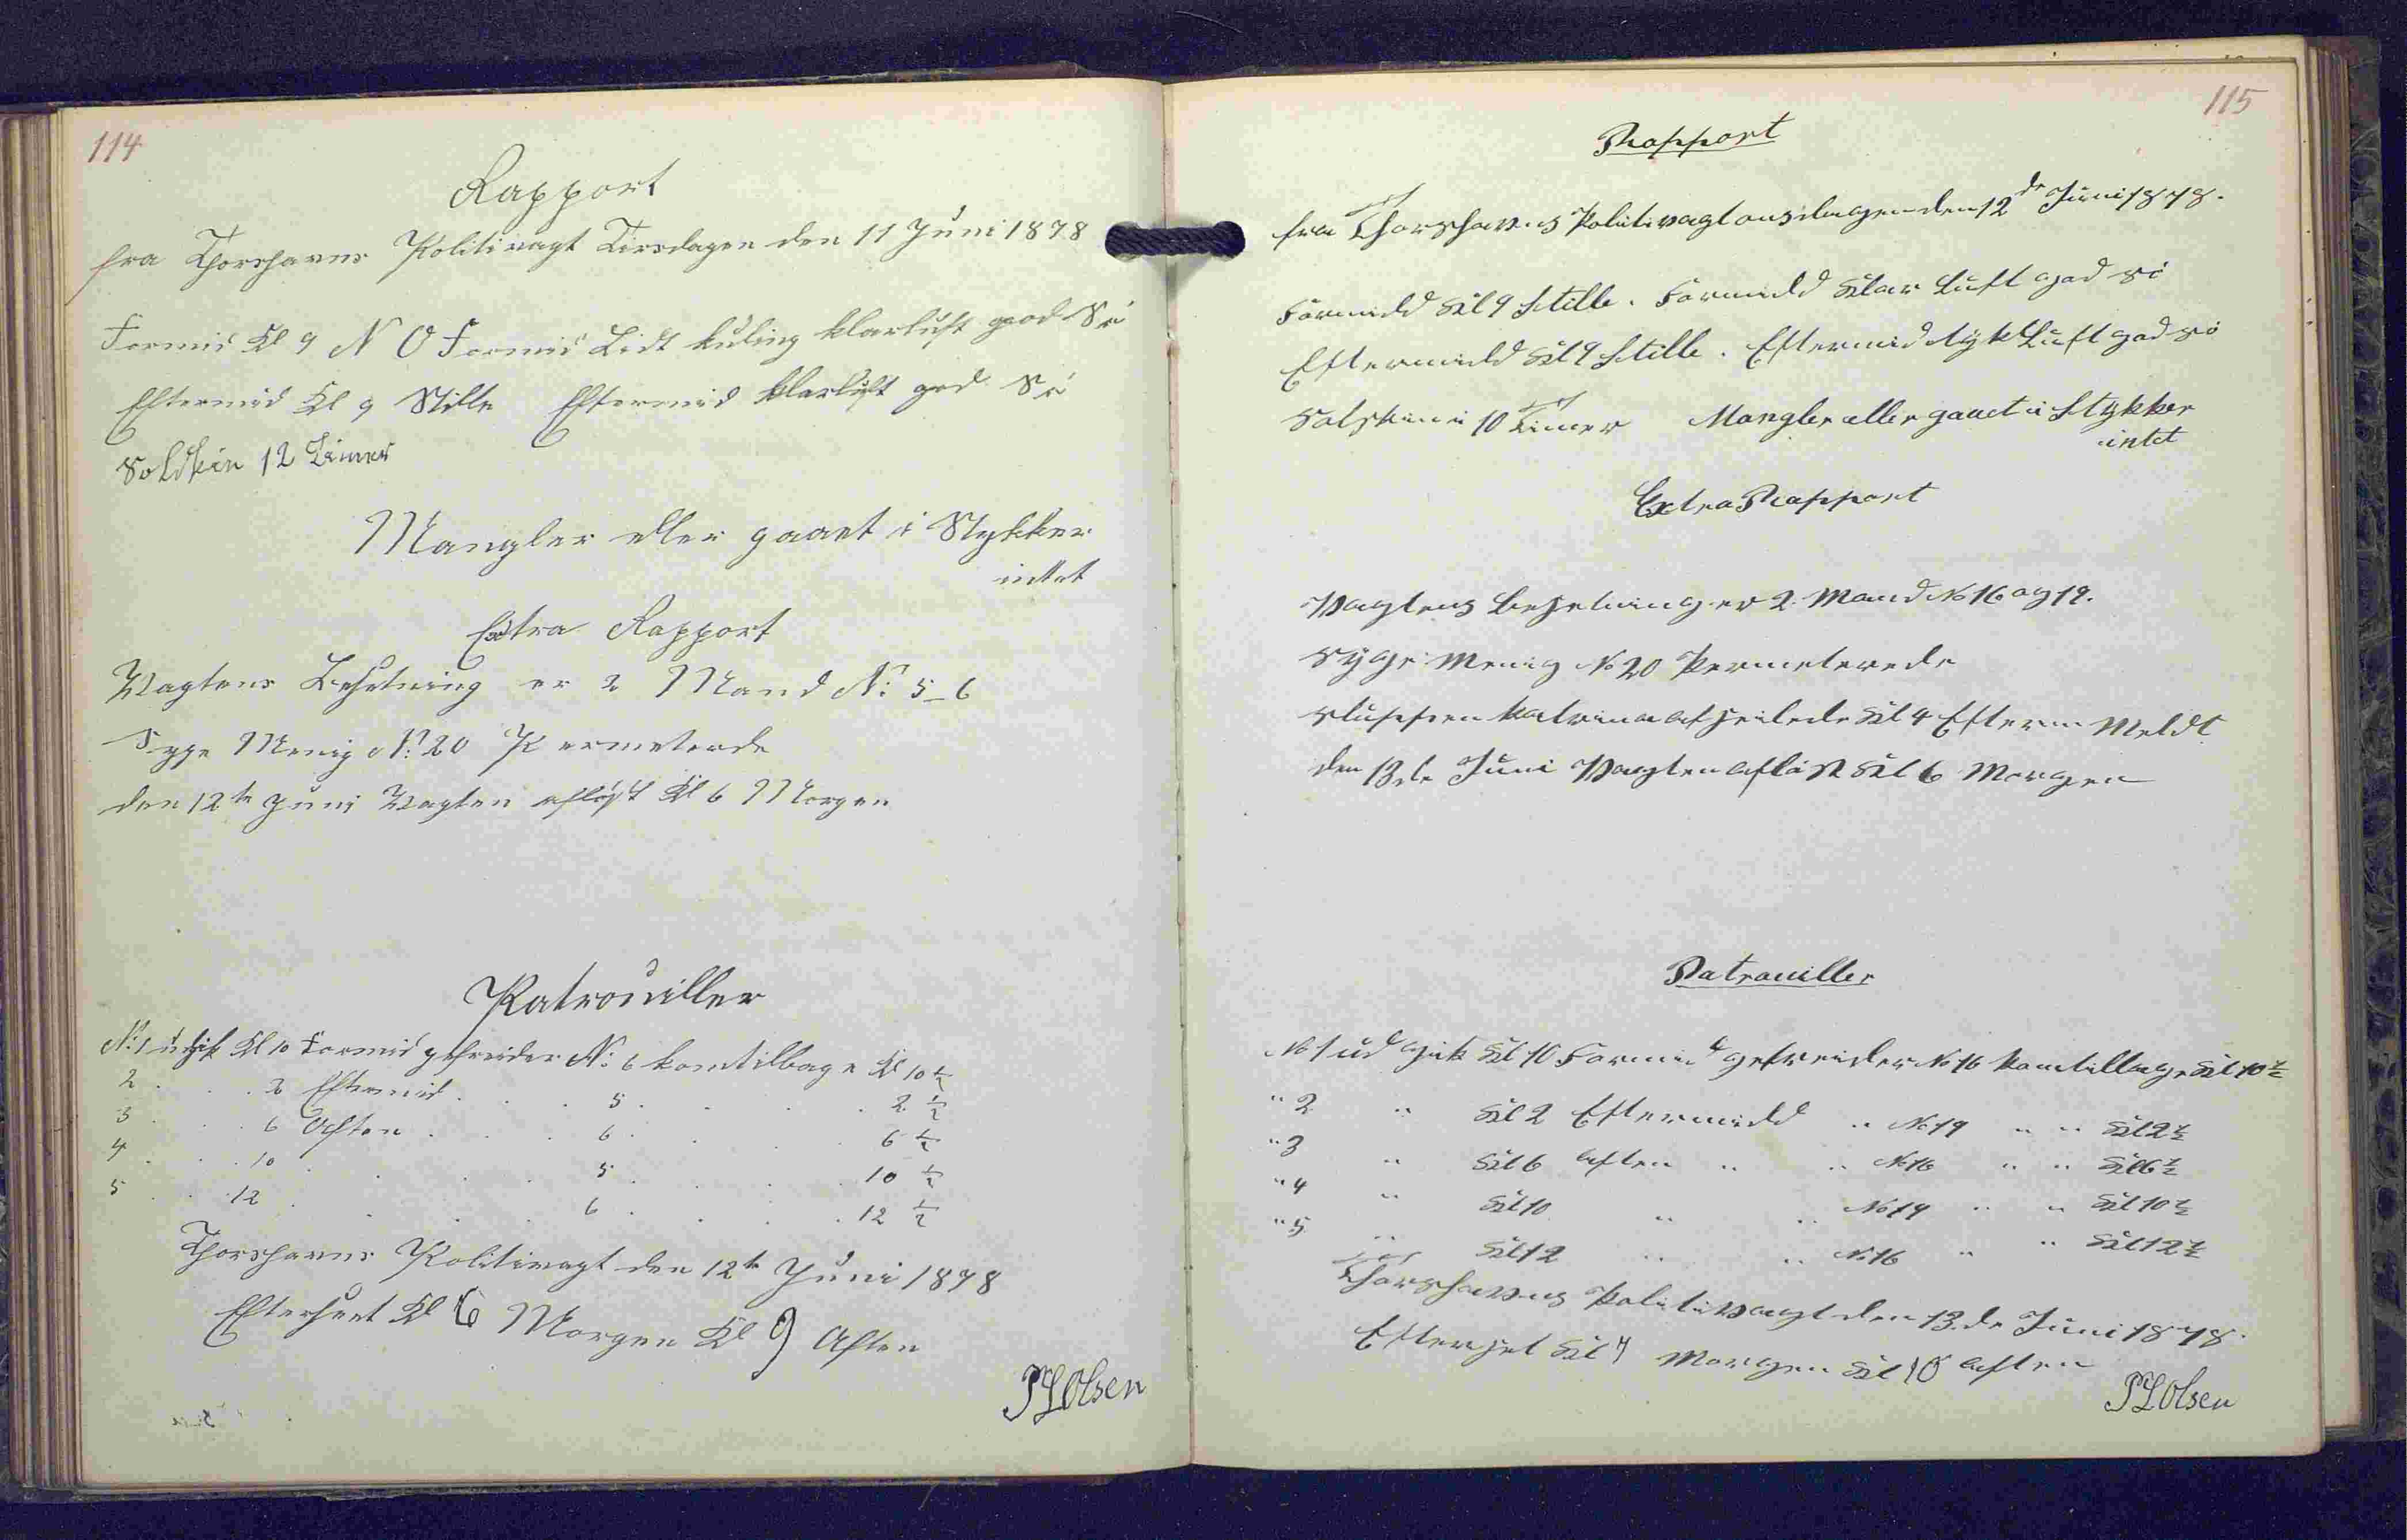 114
Rapport
fra Thorshavns Politivagt Tirsdagen den 11 Juni 1878
Formid Kl 9 N O Formid Lidt kuling klarluft god Sö
Eftermid Kl 9 Stille Eftermid klarluft god Sö
Solskin 12 Timer
Mangler eller gaaet i Stykker
intet
Extra Rapport
Vagtens Besetning er 2 Mand No 5_6
Syge Menig No 20 Permeterede
den 12te Juni Vagten aflöst Kl 6 Morgen
Patrouiller
No 1 udgik Kl 10 Formid gefreider No 6 kom tilbage Kl 10 ½
2 . . 2 Eftermid . . . 5 . . . . 2 ½
3 . . 6 Aften . . . 6 . . . . 6 ½
4 . . 10 . . . . 5 . . . . 10 ½
5 . . 12 . . . . 6 . . . . 12 ½
Thorshavns Politivagt den 12te Juni 1878
Efterseet Kl 6 Morgen Kl 9 Aften
P L Olsen
115
Rapport
fra Thorshavns Politivagt onsdagen den 12de Juni 1878.
Formidd Kl 9 Stille. Formidd Klar Luft god sö
Eftermidd Kl 9 Stille. Eftermid tyk Luft god sö
Solskin i 10 Timer Mangler eller gaaet i Stykker
intet
Extra Rapport
Vagtens besetning er 2. Mand No 16 og 19.
Syge Menig No 20 Permeterede
Sluppen Katrina afseilede Kl 4 Efterm Meldt
den 13de Juni Vagten aflöst Kl 6 Morgen
Patrouiller
No 1 ud gik Kl 10 Formid gefreider No 16 kom tilbage Kl 10 ½
" 2 " Kl 2 Eftermidd " No 19 " " Kl 2 ½
" 3 " Kl 6 aften " " No 16 " " Kl 6 ½
" 4 " Kl 10 " " No 19 " " Kl 10 ½
" 5 " Kl 12 " " No 16 " " Kl 12 ½
Thorshavns Politivagt den 13.de Juni 1878.
Efterset Kl 7 Morgen Kl 10 aften
P L Olsen